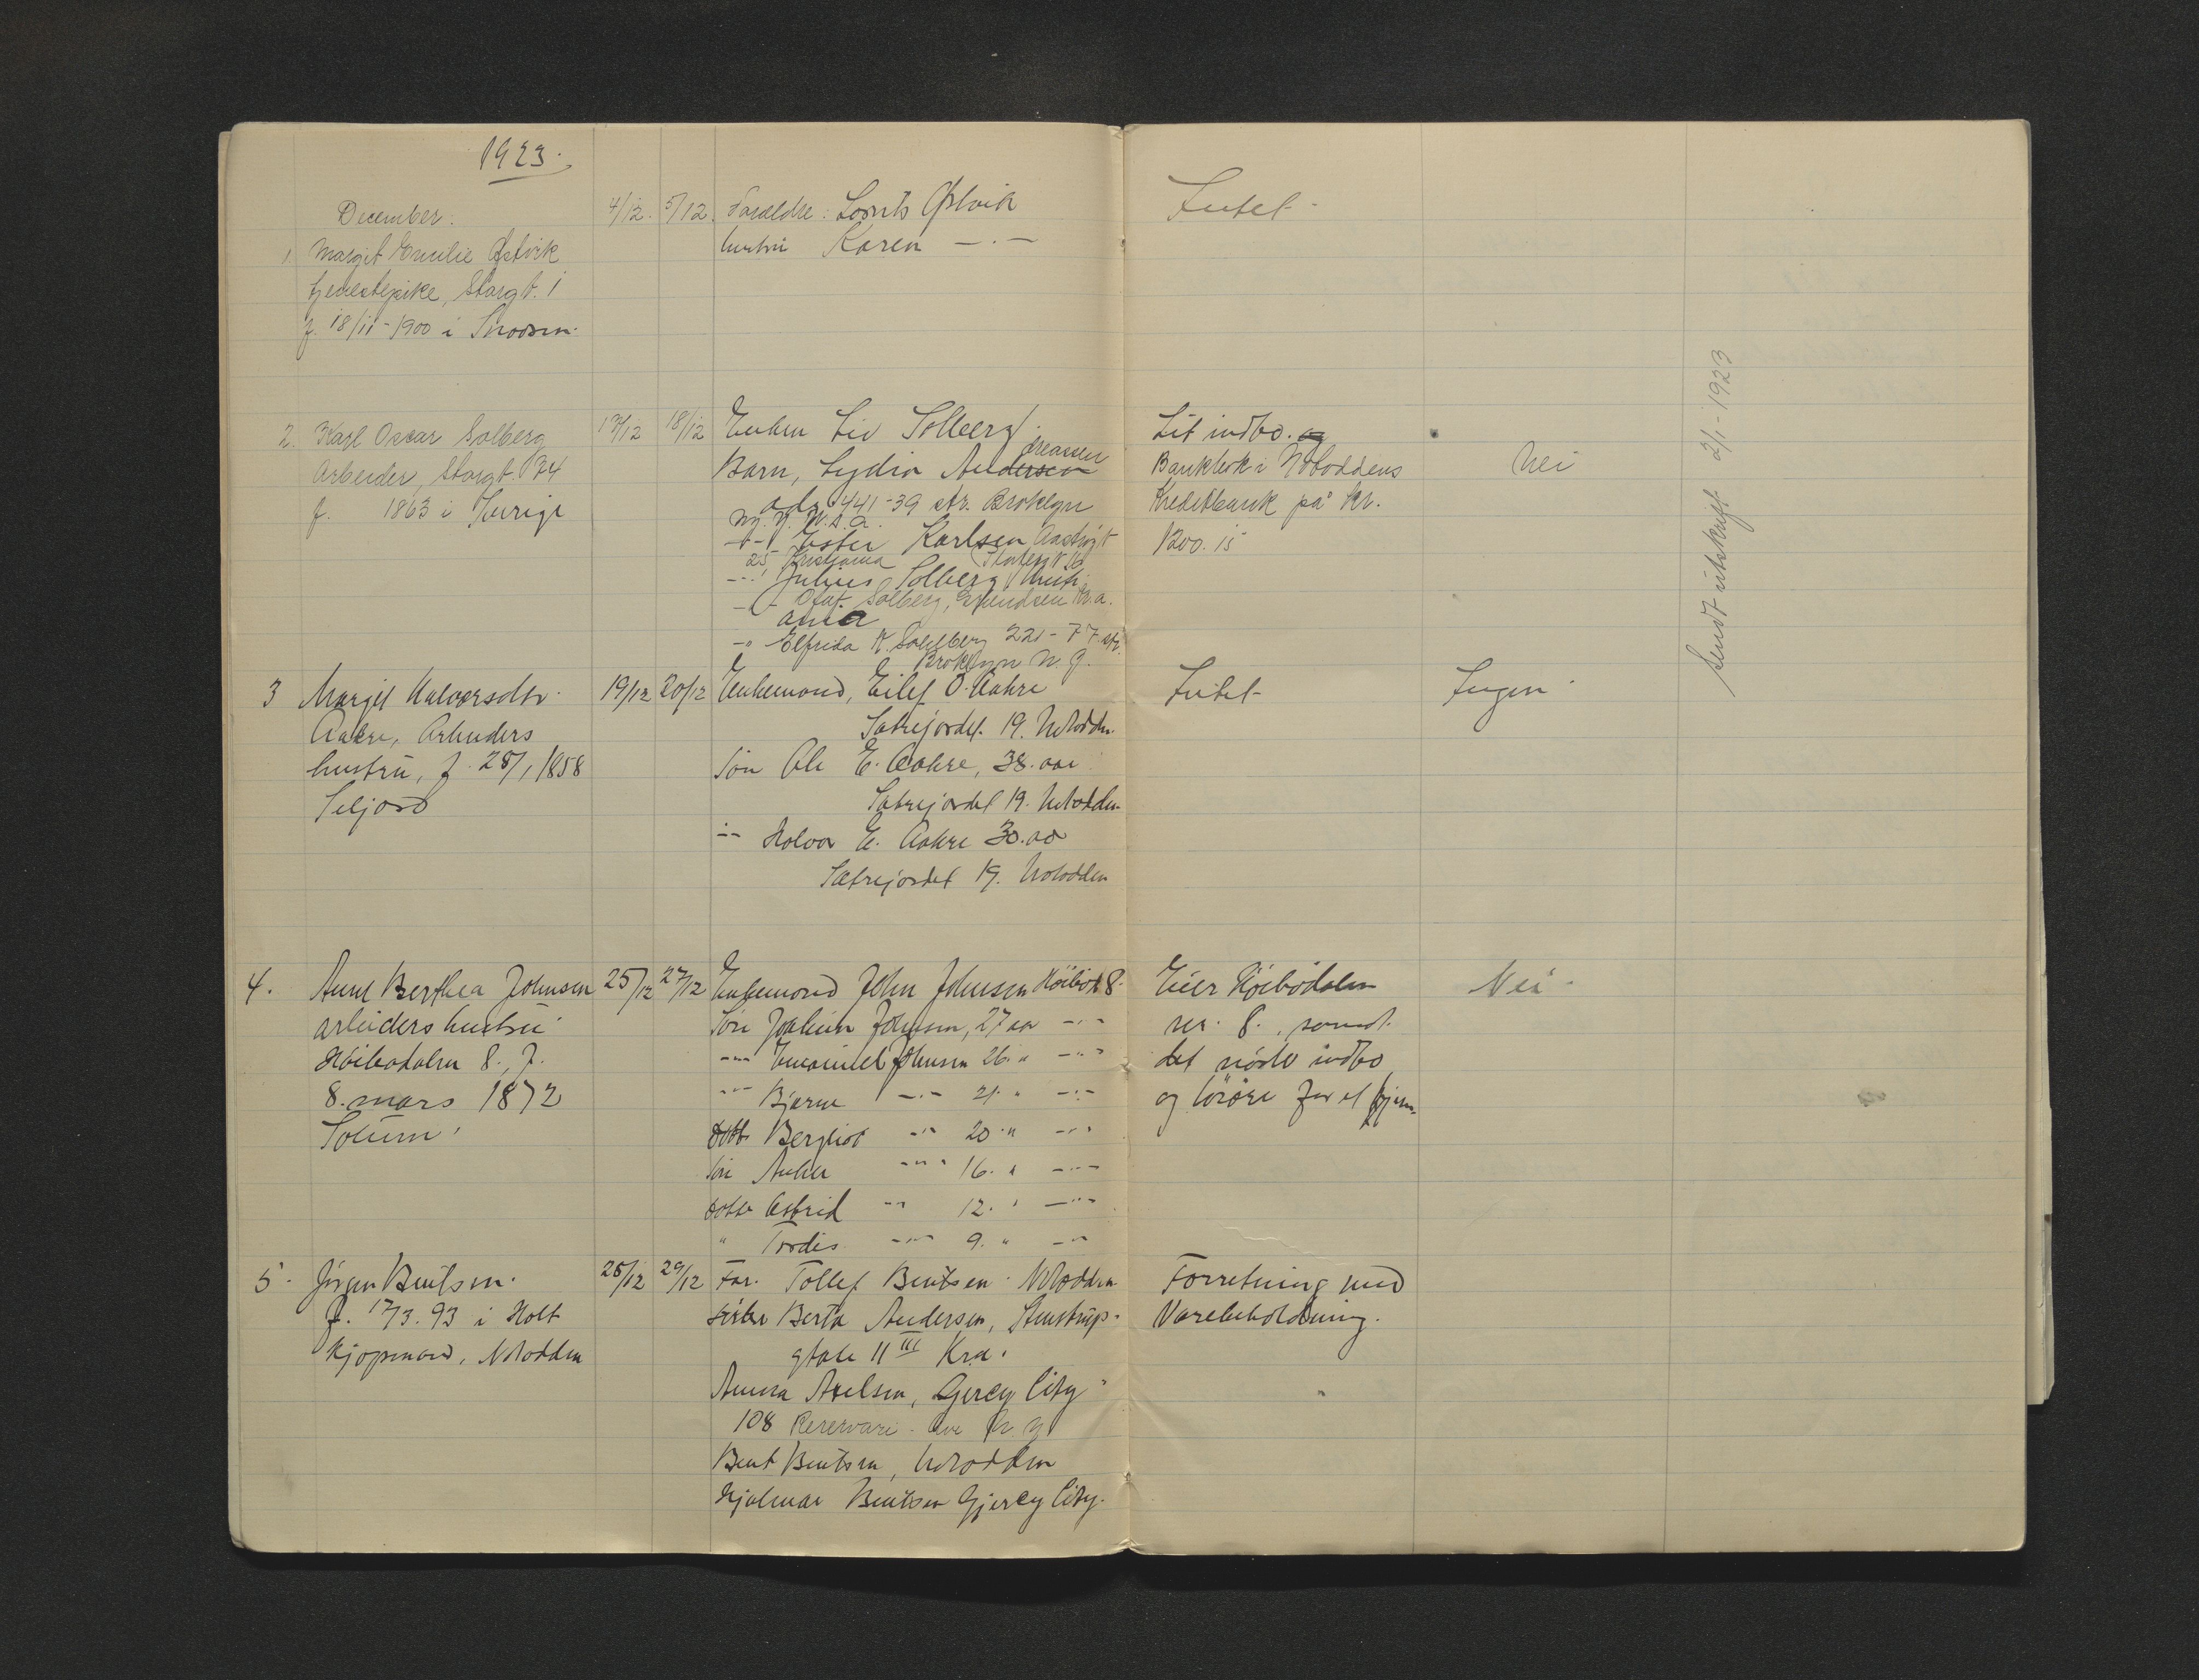 1923.
December.
1. Margit Emilie Østvik
tjenestepike, Storgt. 1
f. 18/11-1900 i
4/12. 5/12.
Foræeldre: Lornts Østvik
hustru Karen -.-
Intet.
2. Karl Oscar Solberg
Arbeider, Storgt. 74
f. 1863 i Sverige
17/12 18/12
Enken Liv Solberg.
dreassen
Barn, Lydia Andersen
adr. 441-39 str. Broklyn
Ny. Y. U.S.A.
-"- Ester Karlsen
25, Kristiania
-"- Julius Solberg
-"- Olaf Solberg,
-"- Elfrida K. Solberg 221-77 str.
Broklyn N.Y.
Lit indbo. og
Bankbok i Notoddens
Kreditbank på kr.
1200.15
Nei
Sendt utskrift 2/1-1923
3 Margit Halvorsdtr.
Aakre, Arbeiders
hustru, f. 28/1 1858
Seljord
19/12 20/12
Enkemand, Eilef O. Aakre
Sætrejordet 19. Notodden.
Søn Ole E. Aakre, 38. aar
Sætrejordet 19. Notodden
-"- Halvor E. Aakre 30. aar
Sætrejordet 19. Notodden
Intet
Ingen
4. Anne Berthea Johnsen
arbeiders hustru
Høibødalen 8., f.
8. mars 1872
Solum.
25/12 27/12
Enkemand John Johnsen Høibød 8.
Søn Joakim Johnsen, 27 aar -"-
-"- Emanuel Johnsen 26. " -"-
-"- Bjarne -"- 21. " -"-
Dottr Bergliot -"- 20 " -"-
Søn Anker -"- 16. " -"-
Dottr Astrid -"- 12. " -"-
" Tordis -"- 9. " -"-
Eier Høibødalen
nr. 8., samt
det nødv indbo
og løsøre for et hjem.
Nei
5. Jørgen Bentsen.
f. 17/3.93 i Holt
Kjøpmand, Notodden
28/12 29/12
Far. Tollef Bentsen Notodden
Søster Berta Andersen, Stenstrup-
gtate 11 III Kra.
Anna Axelsen, Gjercy City
108 Reservari. Ave N.Y
Bent Bentsen, Notodden
Hjalmar Bentsen Gjercy City.
Forretning med
Varebeholdning.